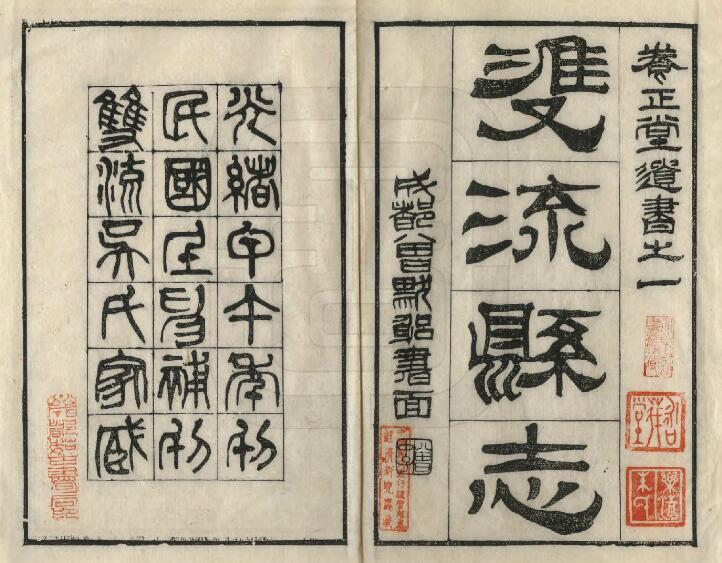 養正堂遺書之一
雙流縣志
成都曾默躬書面
光緒甲午年刊
民國壬申補刊
雙流吳氏家藏